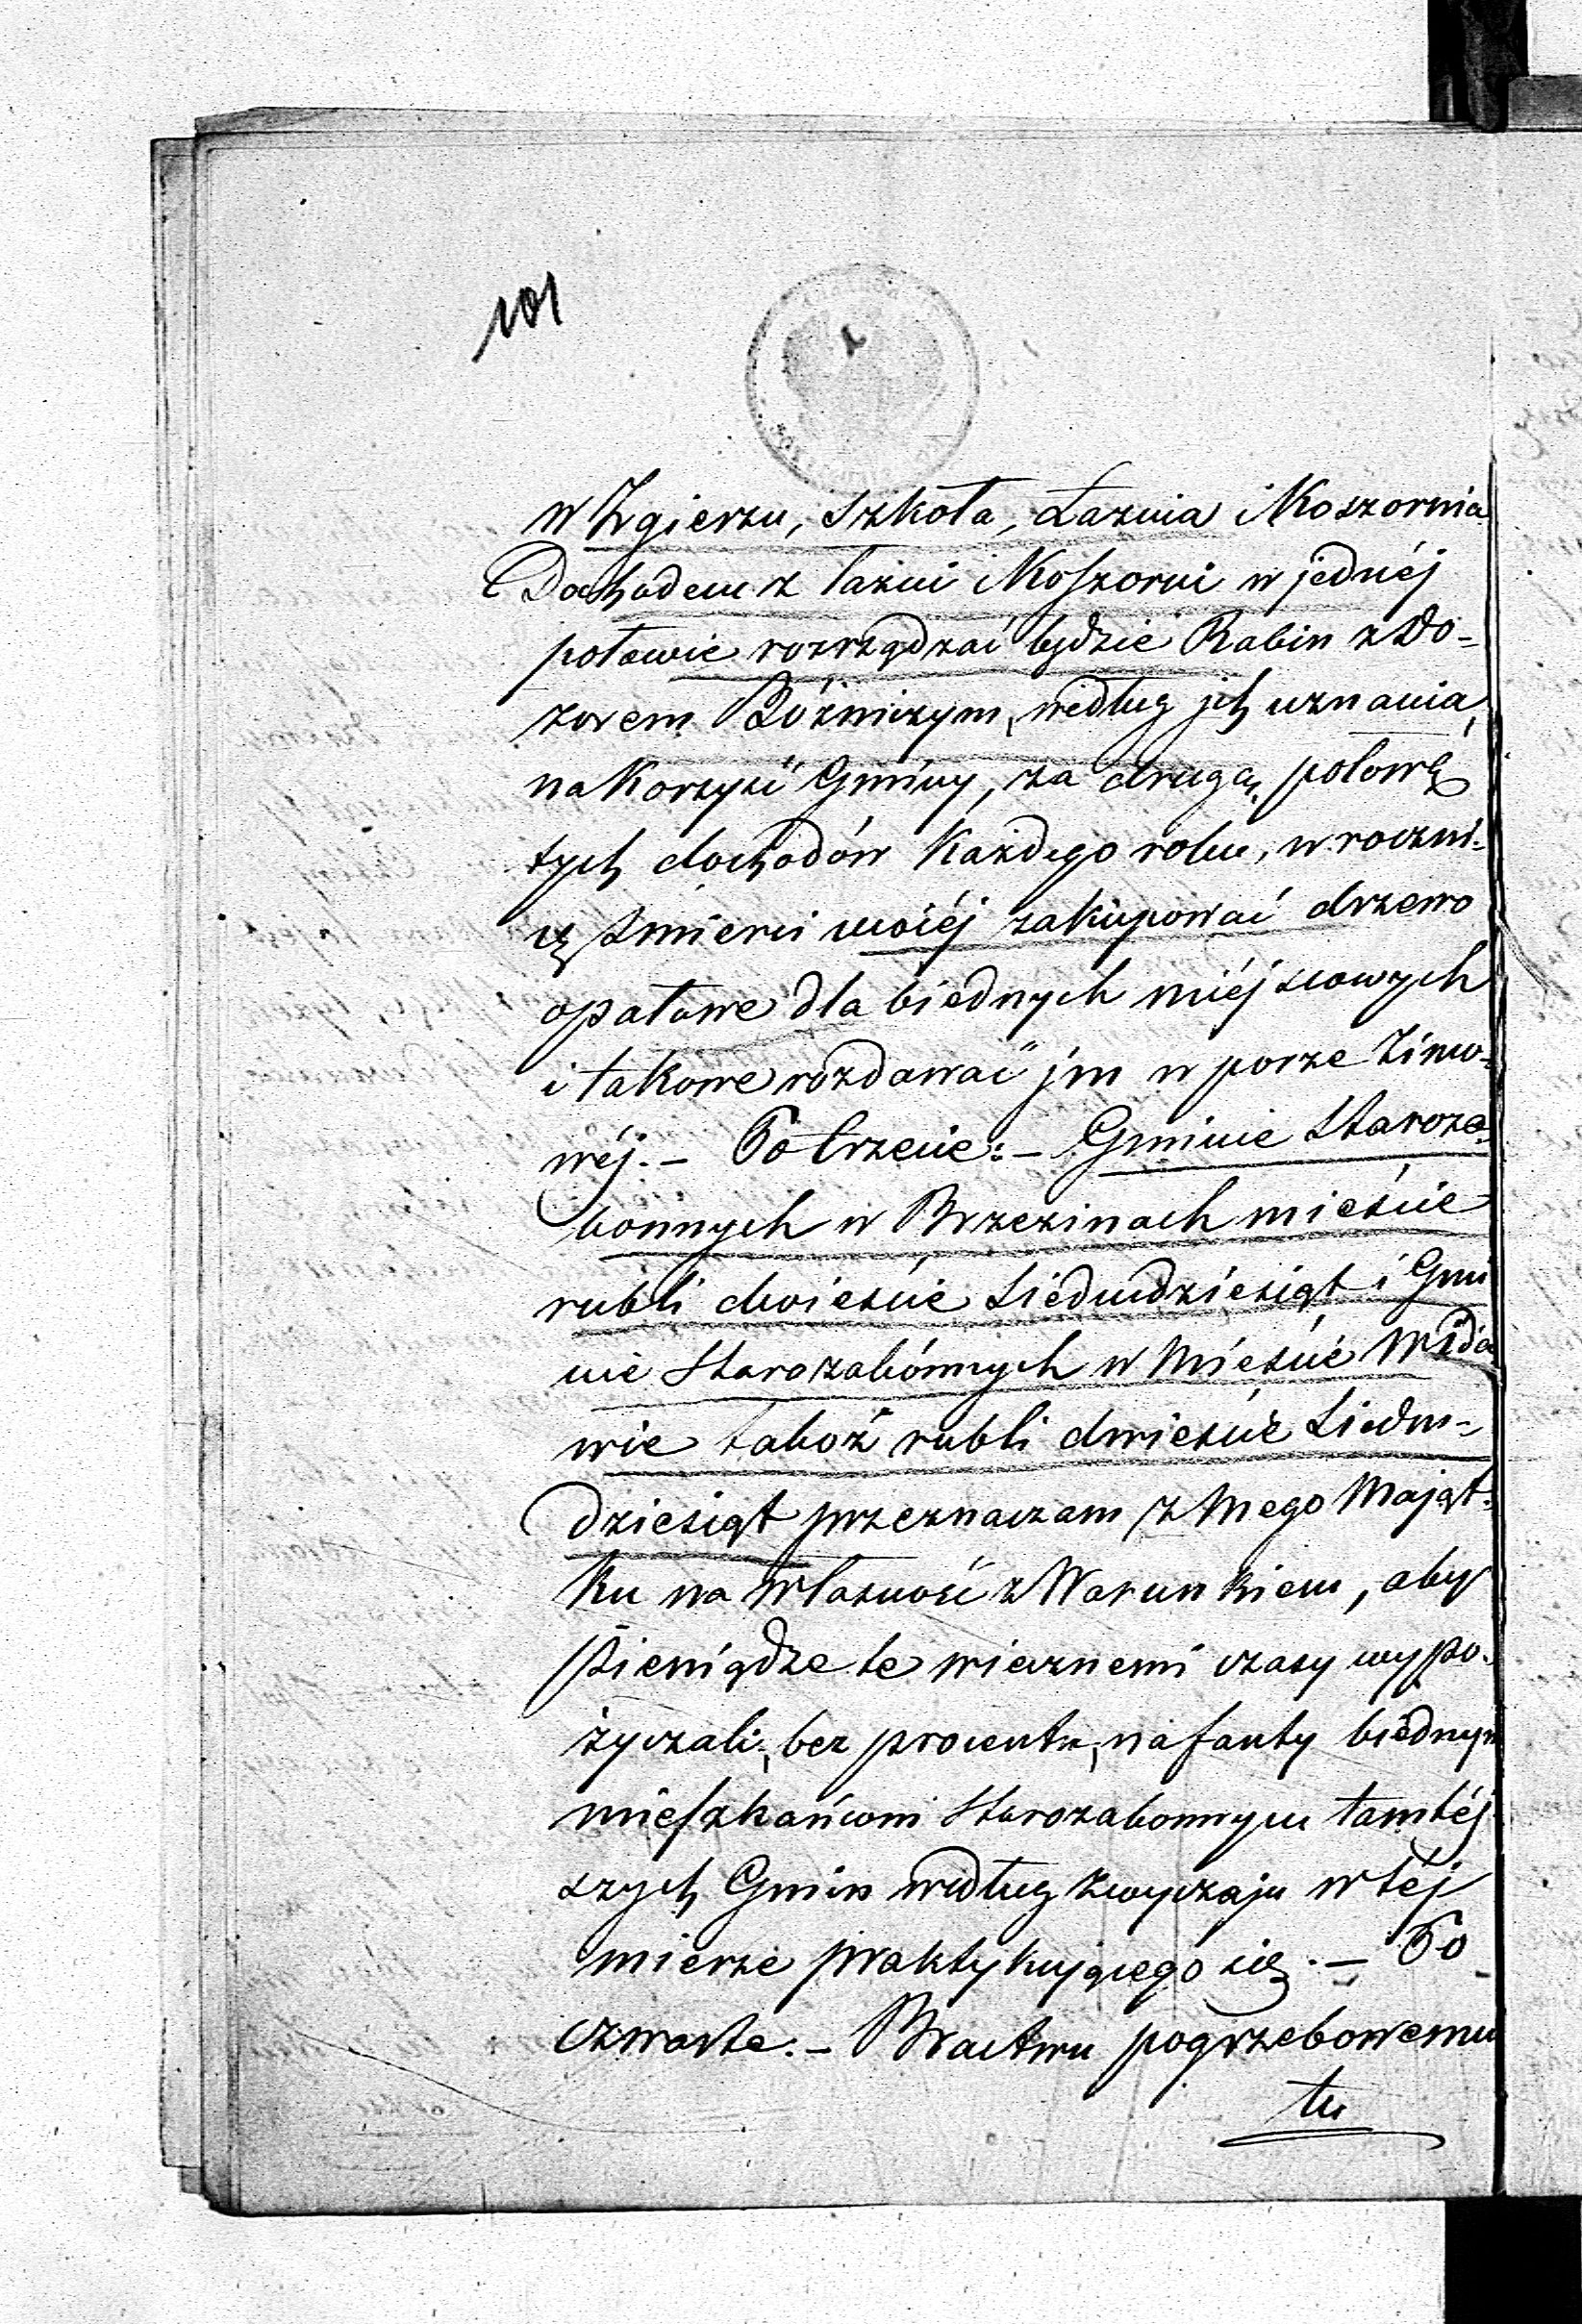 101
w Zgierzu, Szkoła, Łaznia i Koszornia
Dochodem z łaźni i Koszorni w jednéj
połowie rozrządzać będzie Rabin z Do-
zorem Bóżniczym, według jch uznania,
na Korzyść Gminy, za drugą, połowę
tych dochodów Każdego roku, w roczni-
cę śmierci mojéj zakupować drzewo
opałowe dla biednych miéjscowych
i takowe rozdawać jm w porze Zimo-
wéj. – Po trzecie: – Gminie Staroza-
bonnych w Brzezinach mieście
rubli dwieście siedmdziesiąt i Gmi
nie Starozabónnych w Mieście Wida
wie także rubli dwieście siedm-
dziesiąt przeznaczam z Mego Mająt-
ku na Własność z Warunkiem, aby
Pieniądze te wiecznemi czasy wypo-
życzali, bez procentu, na fanty biednym
mieszkańcom Starozabonnym tamtéj-
szych Gmin według zwyczaju w téj
mierze praktykującego się. – Po
czwarte. – Bractwu pogrzebowemu
tu